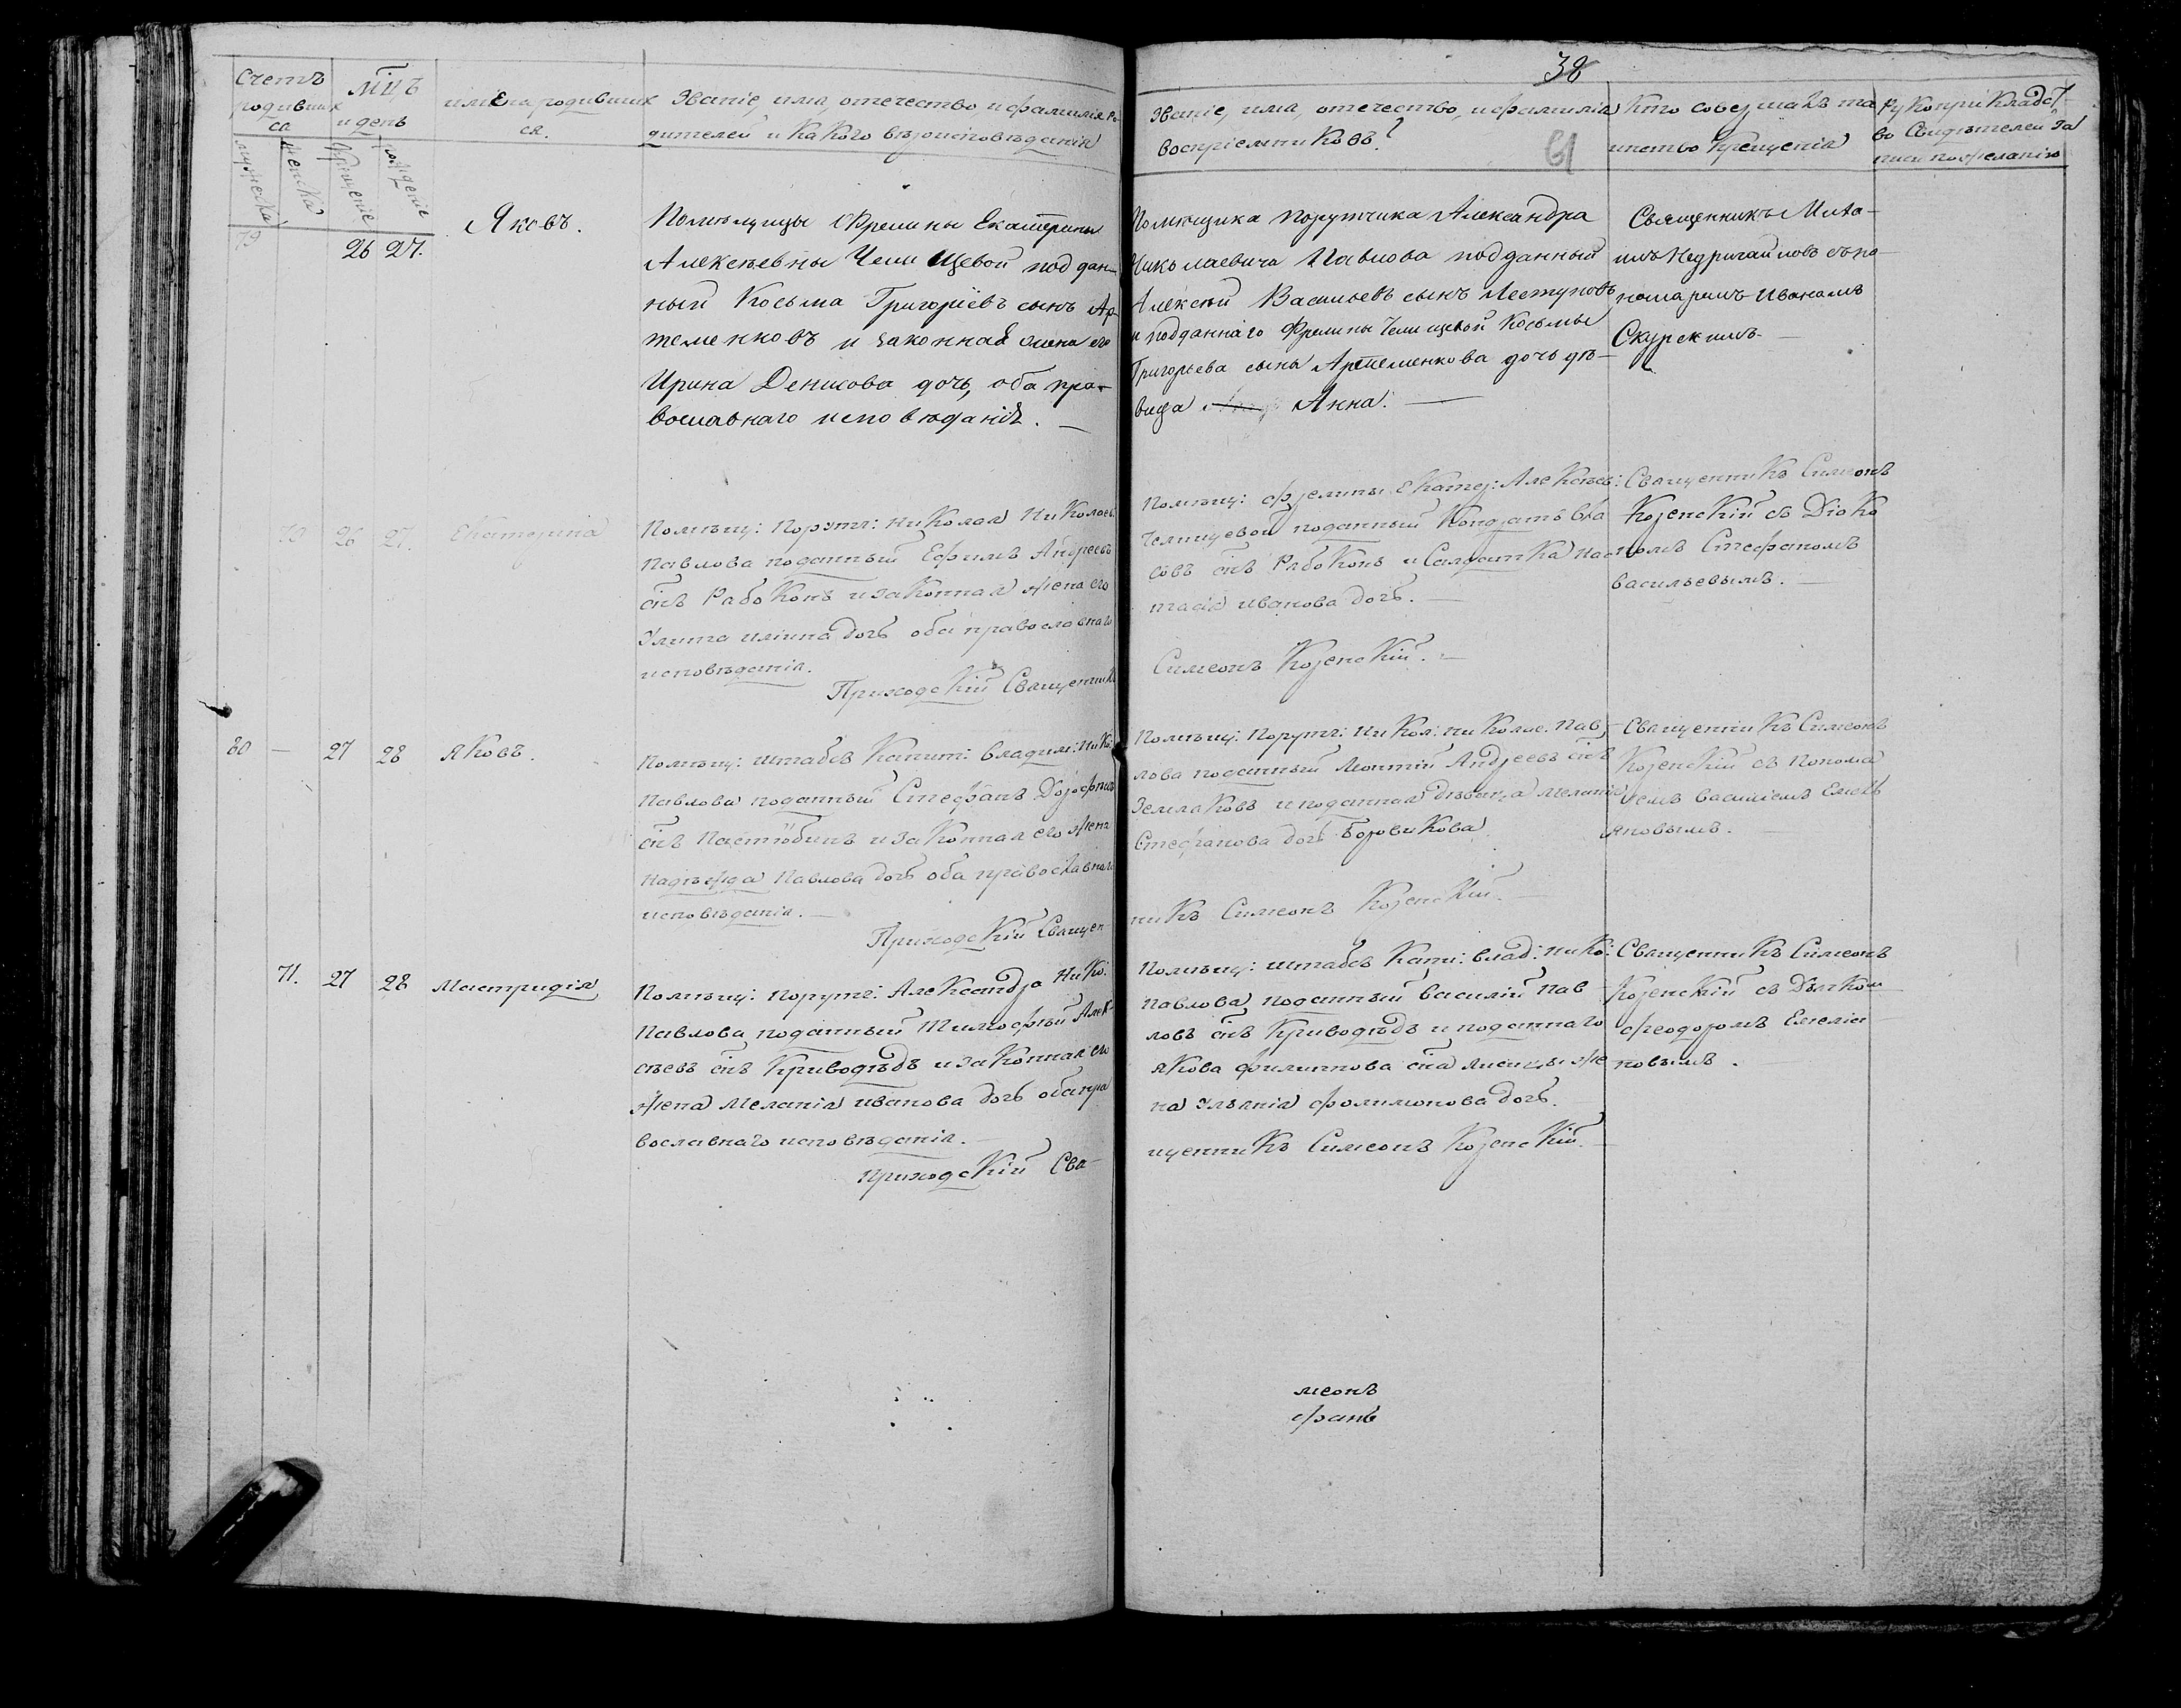 Счетъ родившихся
мужеска
женска
мцъ и день
крещеніе
рожденіе
имена родившихся.
Званіе, имя, отечество, и фамилія родителей и какого вѣроисповѣданія
38
Званіе, имя, отечество, и фамилія воспріемниковъ?
61
Кто совершалъ таинство крещенія
Рукоприкладство свидѣтелей записи по желанію
26 27.
Яковъ.
Помѣщицы Фрелины Екатерины
Алексѣевны Челищевой поддан-
ный Косьма Григоріевъ сынъ Ар-
теменковъ и законная жена его
Ирина Денисова дочь, оба пра-
вославнаго исповѣданія. —
Помѣщика порутчика Александра
Николаевича Павлова подданный
Алексѣй Васильевъ сынъ
и подданнаго Фрелины Челищевой Косьмы
Григорьева сына Артеменкова дочь дѣ-
вица Анна. —
Священникъ Миха-
илъ Недригайловъ съ по-
номаремъ Иваномъ
Скурскимъ.
70 26 27. Екатерина
Помѣщ: Порутч: Николая Николаев:
Павлова поданный Ефимъ Андреевъ
снъ Рабоконь и законная жена его
Улита иліина дочь оба православнаго
исповѣданія.
Приходскій Священникъ
Помѣщ: фрелины Екатер: Алексѣев:
Челищевой поданный Кондратъ Вла
совъ снъ Рабоконь и Салдатка Нас
тасія иванова дочь. —
Симеонъ Коренскій. —
Священникъ Симеонъ
Коренскій съ Діоко
номъ Стефаномъ
васильевымъ. —
80 — 27 28 Яковъ.
Помѣщ: штабсъ Капит: Владим: Ник:
Павлова поданный Стефанъ Дорофѣевъ
снъ и законная его жена
Надѣжда Павлова дочь оба православнаго
исповѣданія. —
Приходскій Священ-
Помѣщ: Порутч: Никол: Николае. Пав-
лова поданный Леонтій Андреевъ снъ
Земляковъ и поданная дѣвица меланія
Стефанова дочь Боровикова
никъ Симеонъ Коренскій. —
Священникъ Симеонъ
Коренскій съ Понома
ремъ Василіемъ Емелі
яновымъ.
71. 27 28 Мастридія
Помѣщ: Порутч: Александра Нико:
Павлова поданный Тимофѣй Алек-
сѣевъ снъ Криводѣдъ и законная его
жена Меланія иванова дочь оба пра
вославнаго исповѣданія. —
приходскій Свя-
Помѣщ: штабсъ Капи: влад: нико:
Павлова поданный Василій Пав
ловъ снъ Криводѣдъ и поданнаго
якова филиппова сна лисицы же
на Ульянія филимонова дочь. —
щенникъ Симеонъ Коренскій. —
Священникъ Симеонъ
Коренскій съ Дьячком
феодоромъ Емелія
новымъ.
меонъ
фанъ